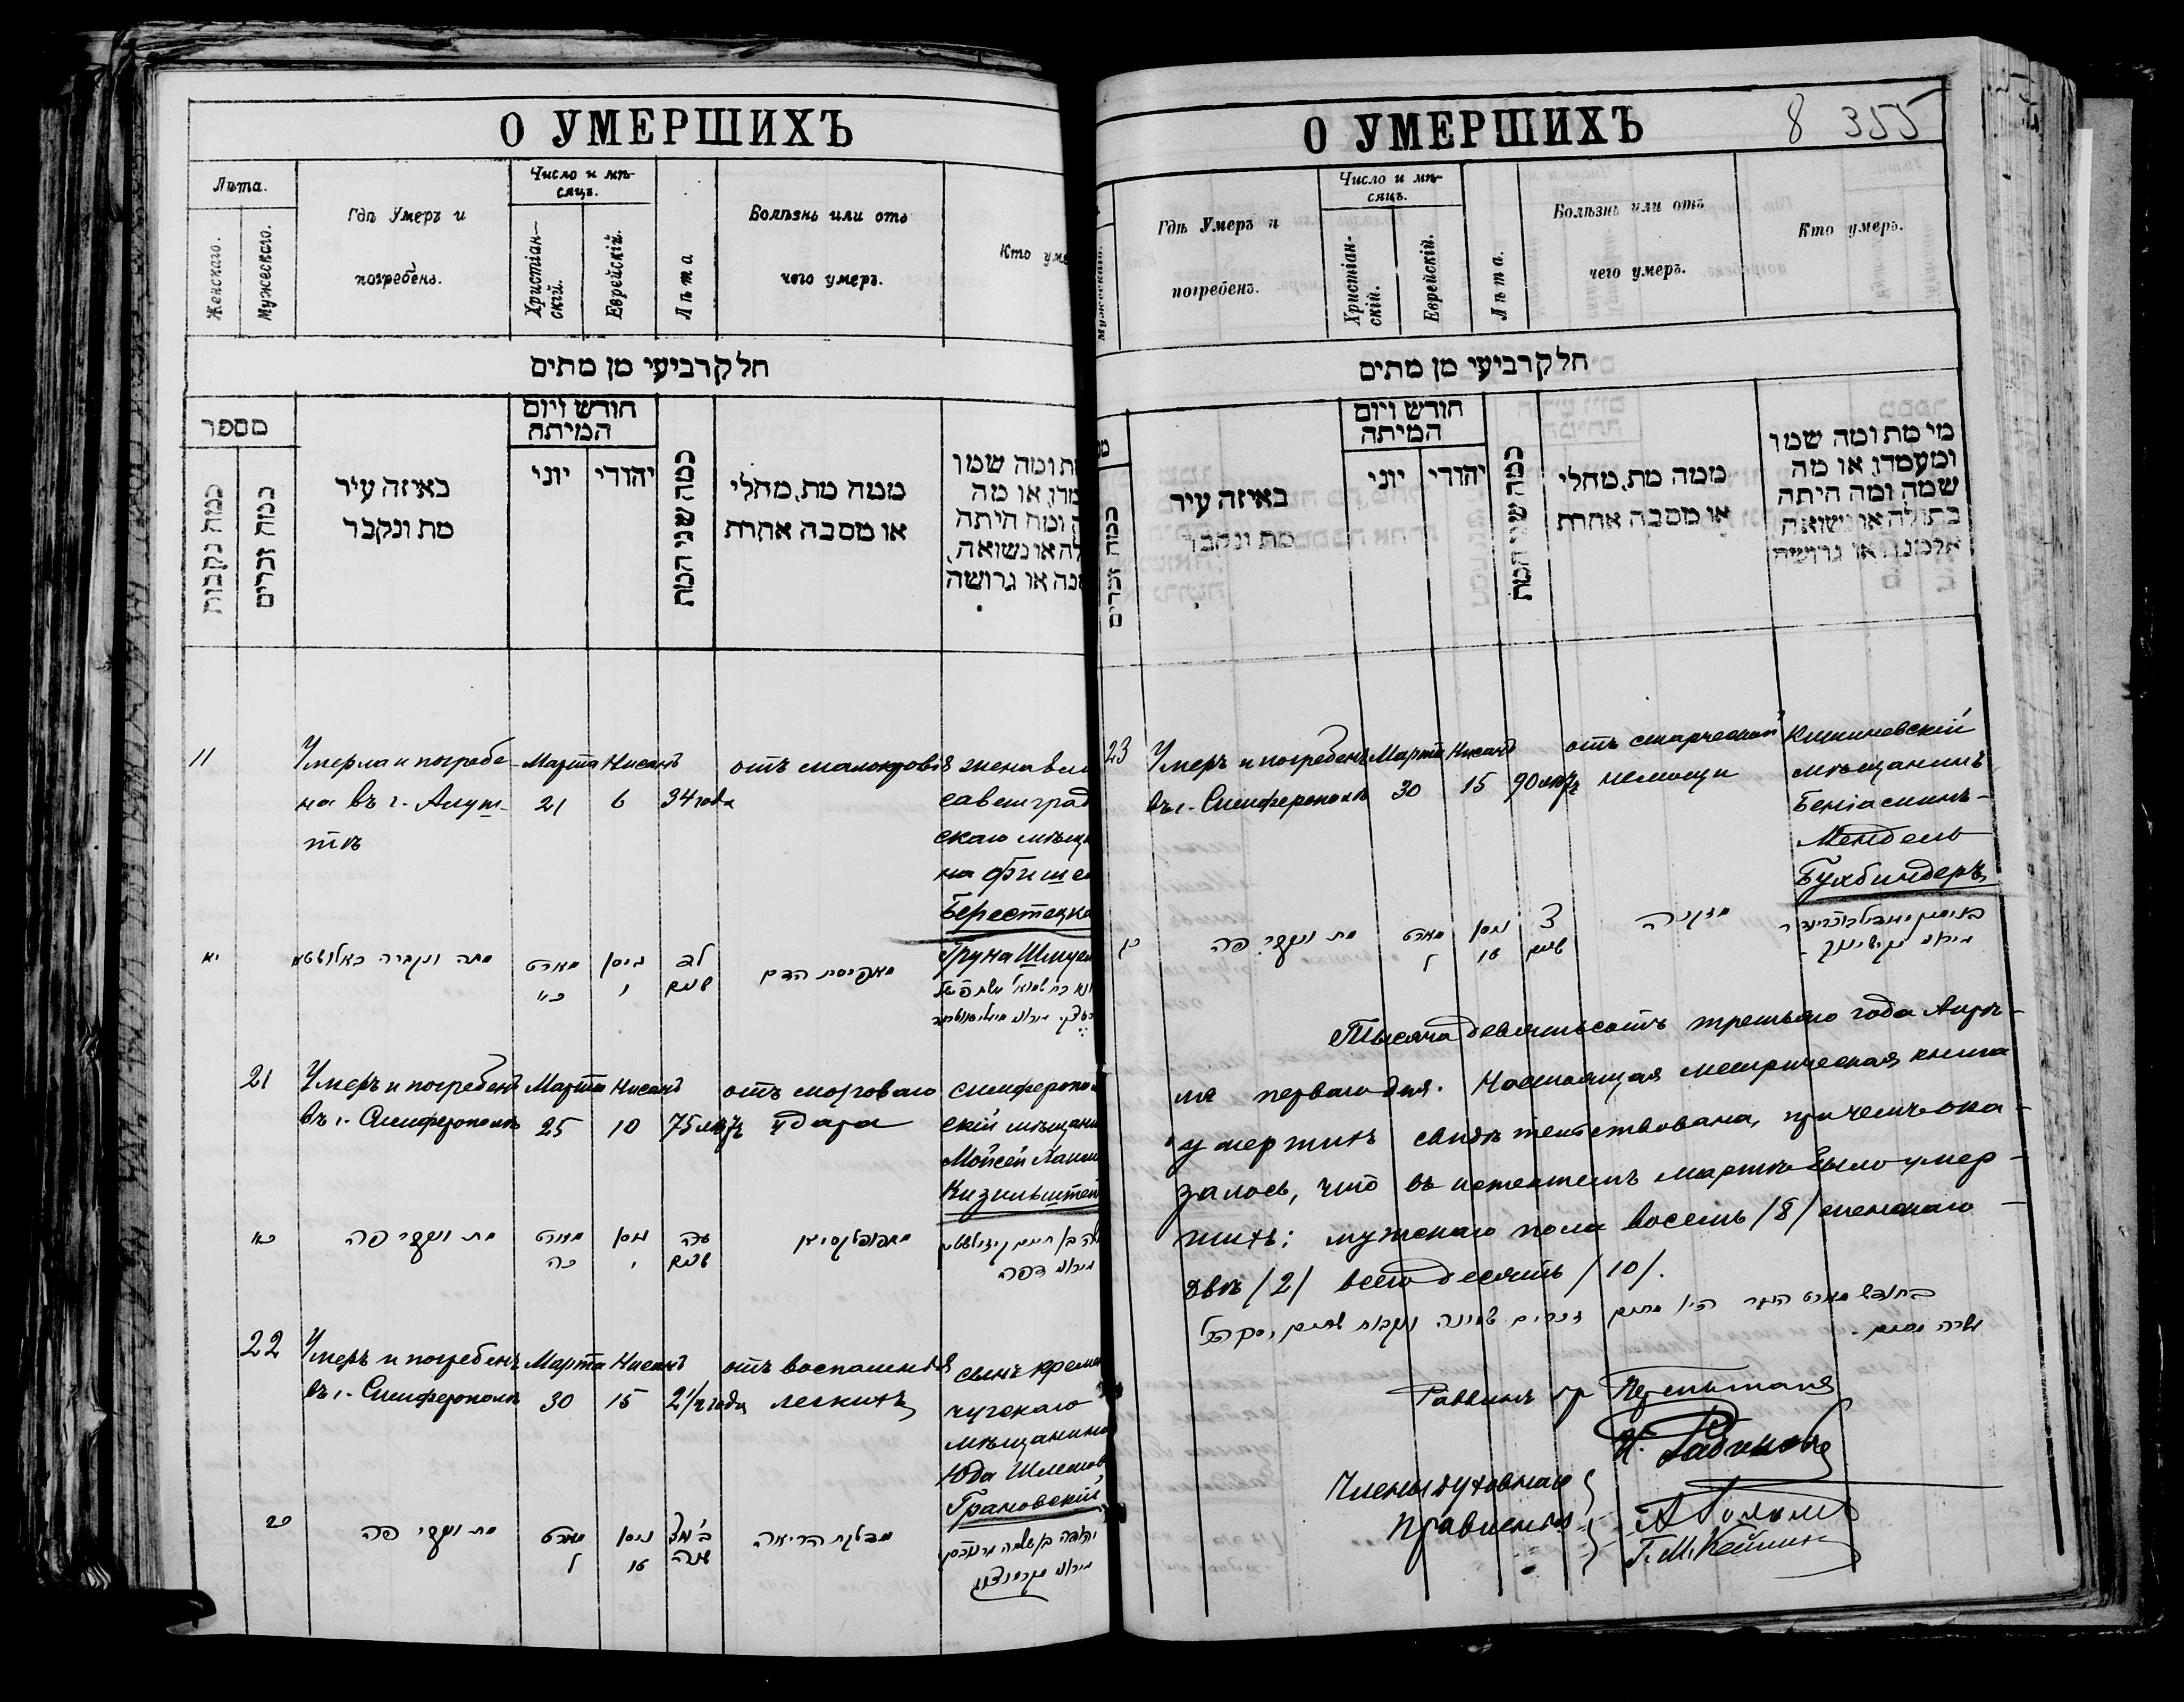 О УМЕРШИХЪ
Лѣта.
Женскаго.
Мужескаго.
Гдѣ Умеръ и
погребенъ.
Число и мѣ-
сяцъ.
Христіан-
скій.
Еврейскій.
Лѣта
Болѣзнь или отъ
чего умеръ.
Кто уме
חלק רביעי מן מתים
מספר
כמה נקבות
כמה זכרים
באיזה עיר
מת ונקבר
חודש ויום
המיתה
יוני
יהודי
כמה שני המת
ממה מת, מחלי
או מסבה אחרת
ת ומה שמו
מדו, או מה
ה ומה היתה
לה או נשואה,
נה או גרושה
11
Умерла и погребе-
на въ г. Алуш-
тѣ
Марта
21
Нисанъ
6
34 года
отъ малокровія
жена
саветград
скаго мѣща
на Фише
Берестецка
Груна Шмуе
יא
מתה ונקברה באלושטא
מארט
כא
ניסן
ו
לד
שנים
מאפיסת הדם
21
Умеръ и погребенъ
въ г. Симферополѣ
Марта
25
Нисанъ
10
75 лѣтъ
отъ моргового
удара
симферопол
скій мѣщани
Мойсей
Кизильштей
כא
מת ונקבר פה
מארט
כה
ניסן
י
עה
שנים
22
Умеръ и погребенъ
въ г. Симферополѣ
Марта
30
Нисанъ
15
2½ года
отъ воспаленія
легкихъ
сынъ кремен
чугскаго
мѣщанина
Юда Шлемов
Грановскій
כב
מת ונקבר פה
מארט
ל
ניסן
טו
שנה
מדלקת הריאה
О УМЕРШИХЪ
8 355
Мужескаго.
Гдѣ Умеръ и
погребенъ.
Число и мѣ-
сяцъ.
Христіан-
скій.
Еврейскій.
Лѣта.
Болѣзнь или отъ
чего умеръ.
Кто умеръ.
חלק רביעי מן מתים
כמה זכרים
באיזה עיר
מת ונקבר
חודש ויום
המיתה
יוני
יהודי
כמה שני המת
ממה מת, מחלי
או מסבה אחרת
מי מת ומה שמו
ומעמדו, או מה
שמה ומה היתה
בתולה או נשואה
אלמנה או גרושה
23
Умеръ и погребенъ
въ г. Симферополѣ
Марта
30
Нисанъ
15
90 лѣтъ
отъ старческой
немощи
Кишиневскій
мѣщанинъ
Беніаминъ-
Мендель
Бухбиндеръ
מת ונקבר פה
מארט
ל
ניסן
טו
צ
שנים
מזקנה
Тысяча девятьсотъ третьяго года Апрѣ-
ля перваго дня. Настоящая метрическая книга
умершихъ свидѣтельствована, причемъ ока-
залось, что въ истекшемъ мартѣ было умер-
шихъ: мужскаго пола восемь /8/ женскаго -
двѣ /2/ всего десять /10/.
בחודש מארט היו מתים זכרים שמונה נקבות שתים, סך הכל
עשרה מתים.
Раввинъ
Члены духовнаго
правленія